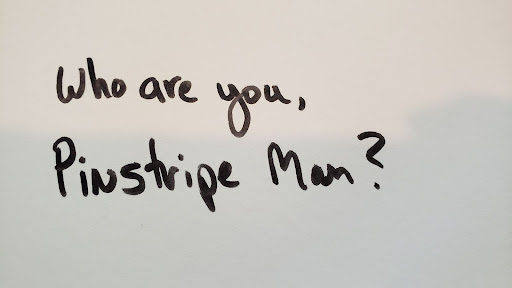 Who are you,
Pinstripe Man?